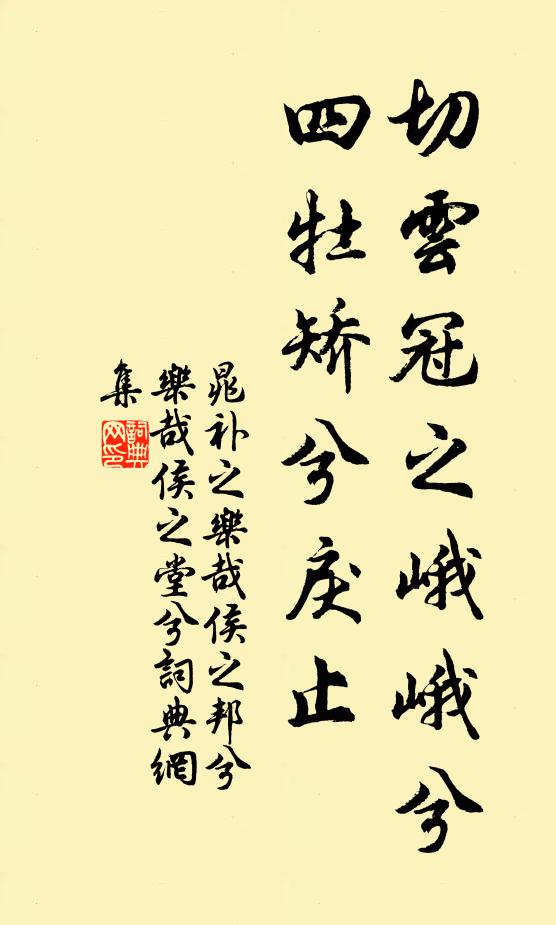 切雲冠之峨峨兮
四牡矯兮戾止
晁补之樂哉侯之邦兮
樂哉侯之堂兮詞典網
集
詞典
网印